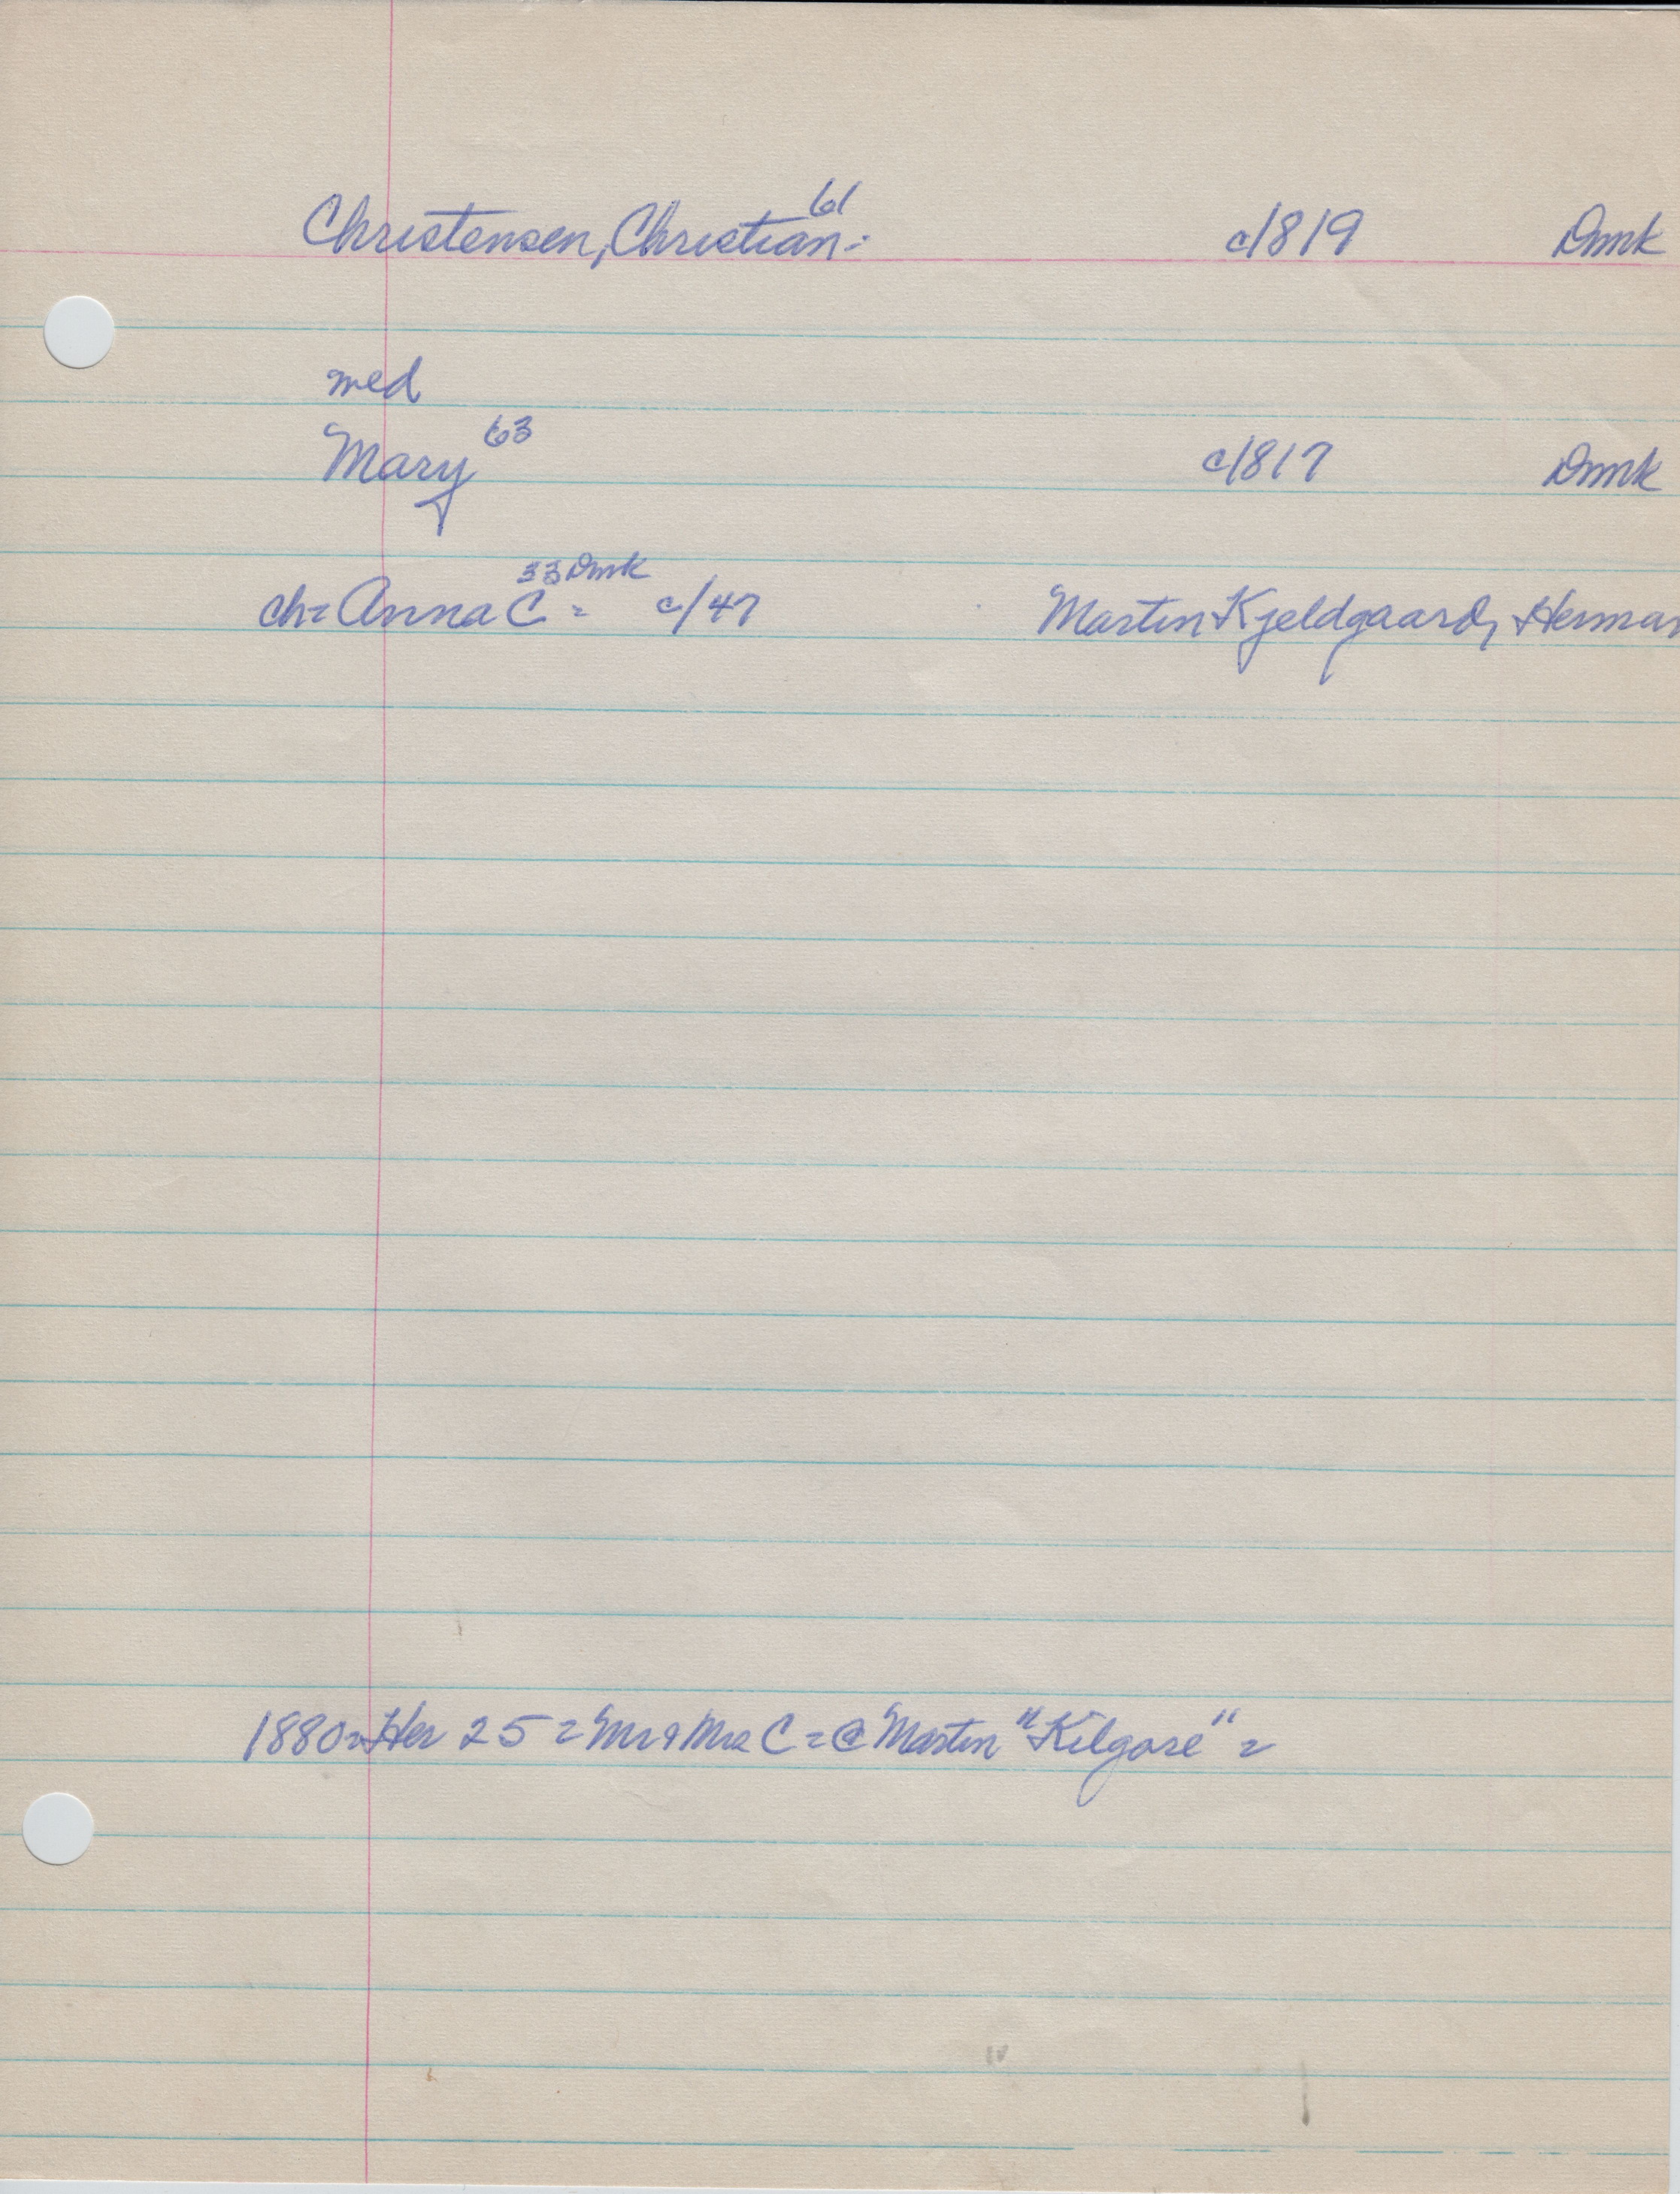 Christensen, Christian 61 = c/1819 Dmk
med
Mary 63 c/1817 Dmk
33 Dmk
ch = Anna C = c/47 Martin Kjeldgaard, Herman
1880 = Her 25 = Mr & Mrs C = @ Martin "Kilgore" =